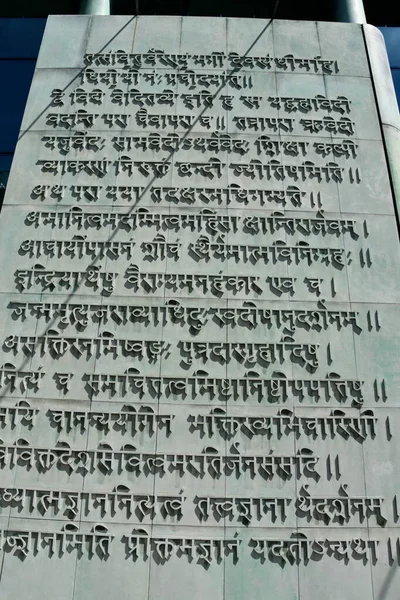 तत्सवितुर्वरेण्यं भर्गो देवस्य धीमहि।
धियो यो नः प्रचोदयात्॥
द्वे विद्ये वेदितव्ये इति ह स्म यद्ब्रह्मविदो
वदन्ति परा चैवापरा च॥ तत्रापरा ऋग्वेदो
यजुर्वेदः सामवेदोऽथर्ववेदः शिक्षा कल्पो
व्याकरणं निरुक्तं छन्दो ज्योतिषमिति॥
अथ परा यया तदक्षरमधिगम्यते॥
अमानित्वमदम्भित्वमहिंसा क्षान्तिरार्जवम्।
आचार्योपासनं शौचं स्थैर्यमात्मविनिग्रहः॥
इन्द्रियार्थेषु वैराग्यमनहंकार एव च।
जन्ममृत्युजराव्याधिदुःखदोषानुदर्शनम्॥
असक्तिरनभिष्वङ्गः पुत्रदारगृहादिषु।
नित्यं च समचित्तत्वमिष्टानिष्टोपपत्तिषु॥
मयि चानन्ययोगेन भक्तिरव्यभिचारिणी।
विविक्तदेशसेवित्वमरतिर्जनसंसदि॥
ध्यात्मज्ञाननित्यत्वं तत्त्वज्ञानार्थदर्शनम्॥
ज्ज्ञानमिति प्रोक्तमज्ञानं यदतोऽन्यथा॥